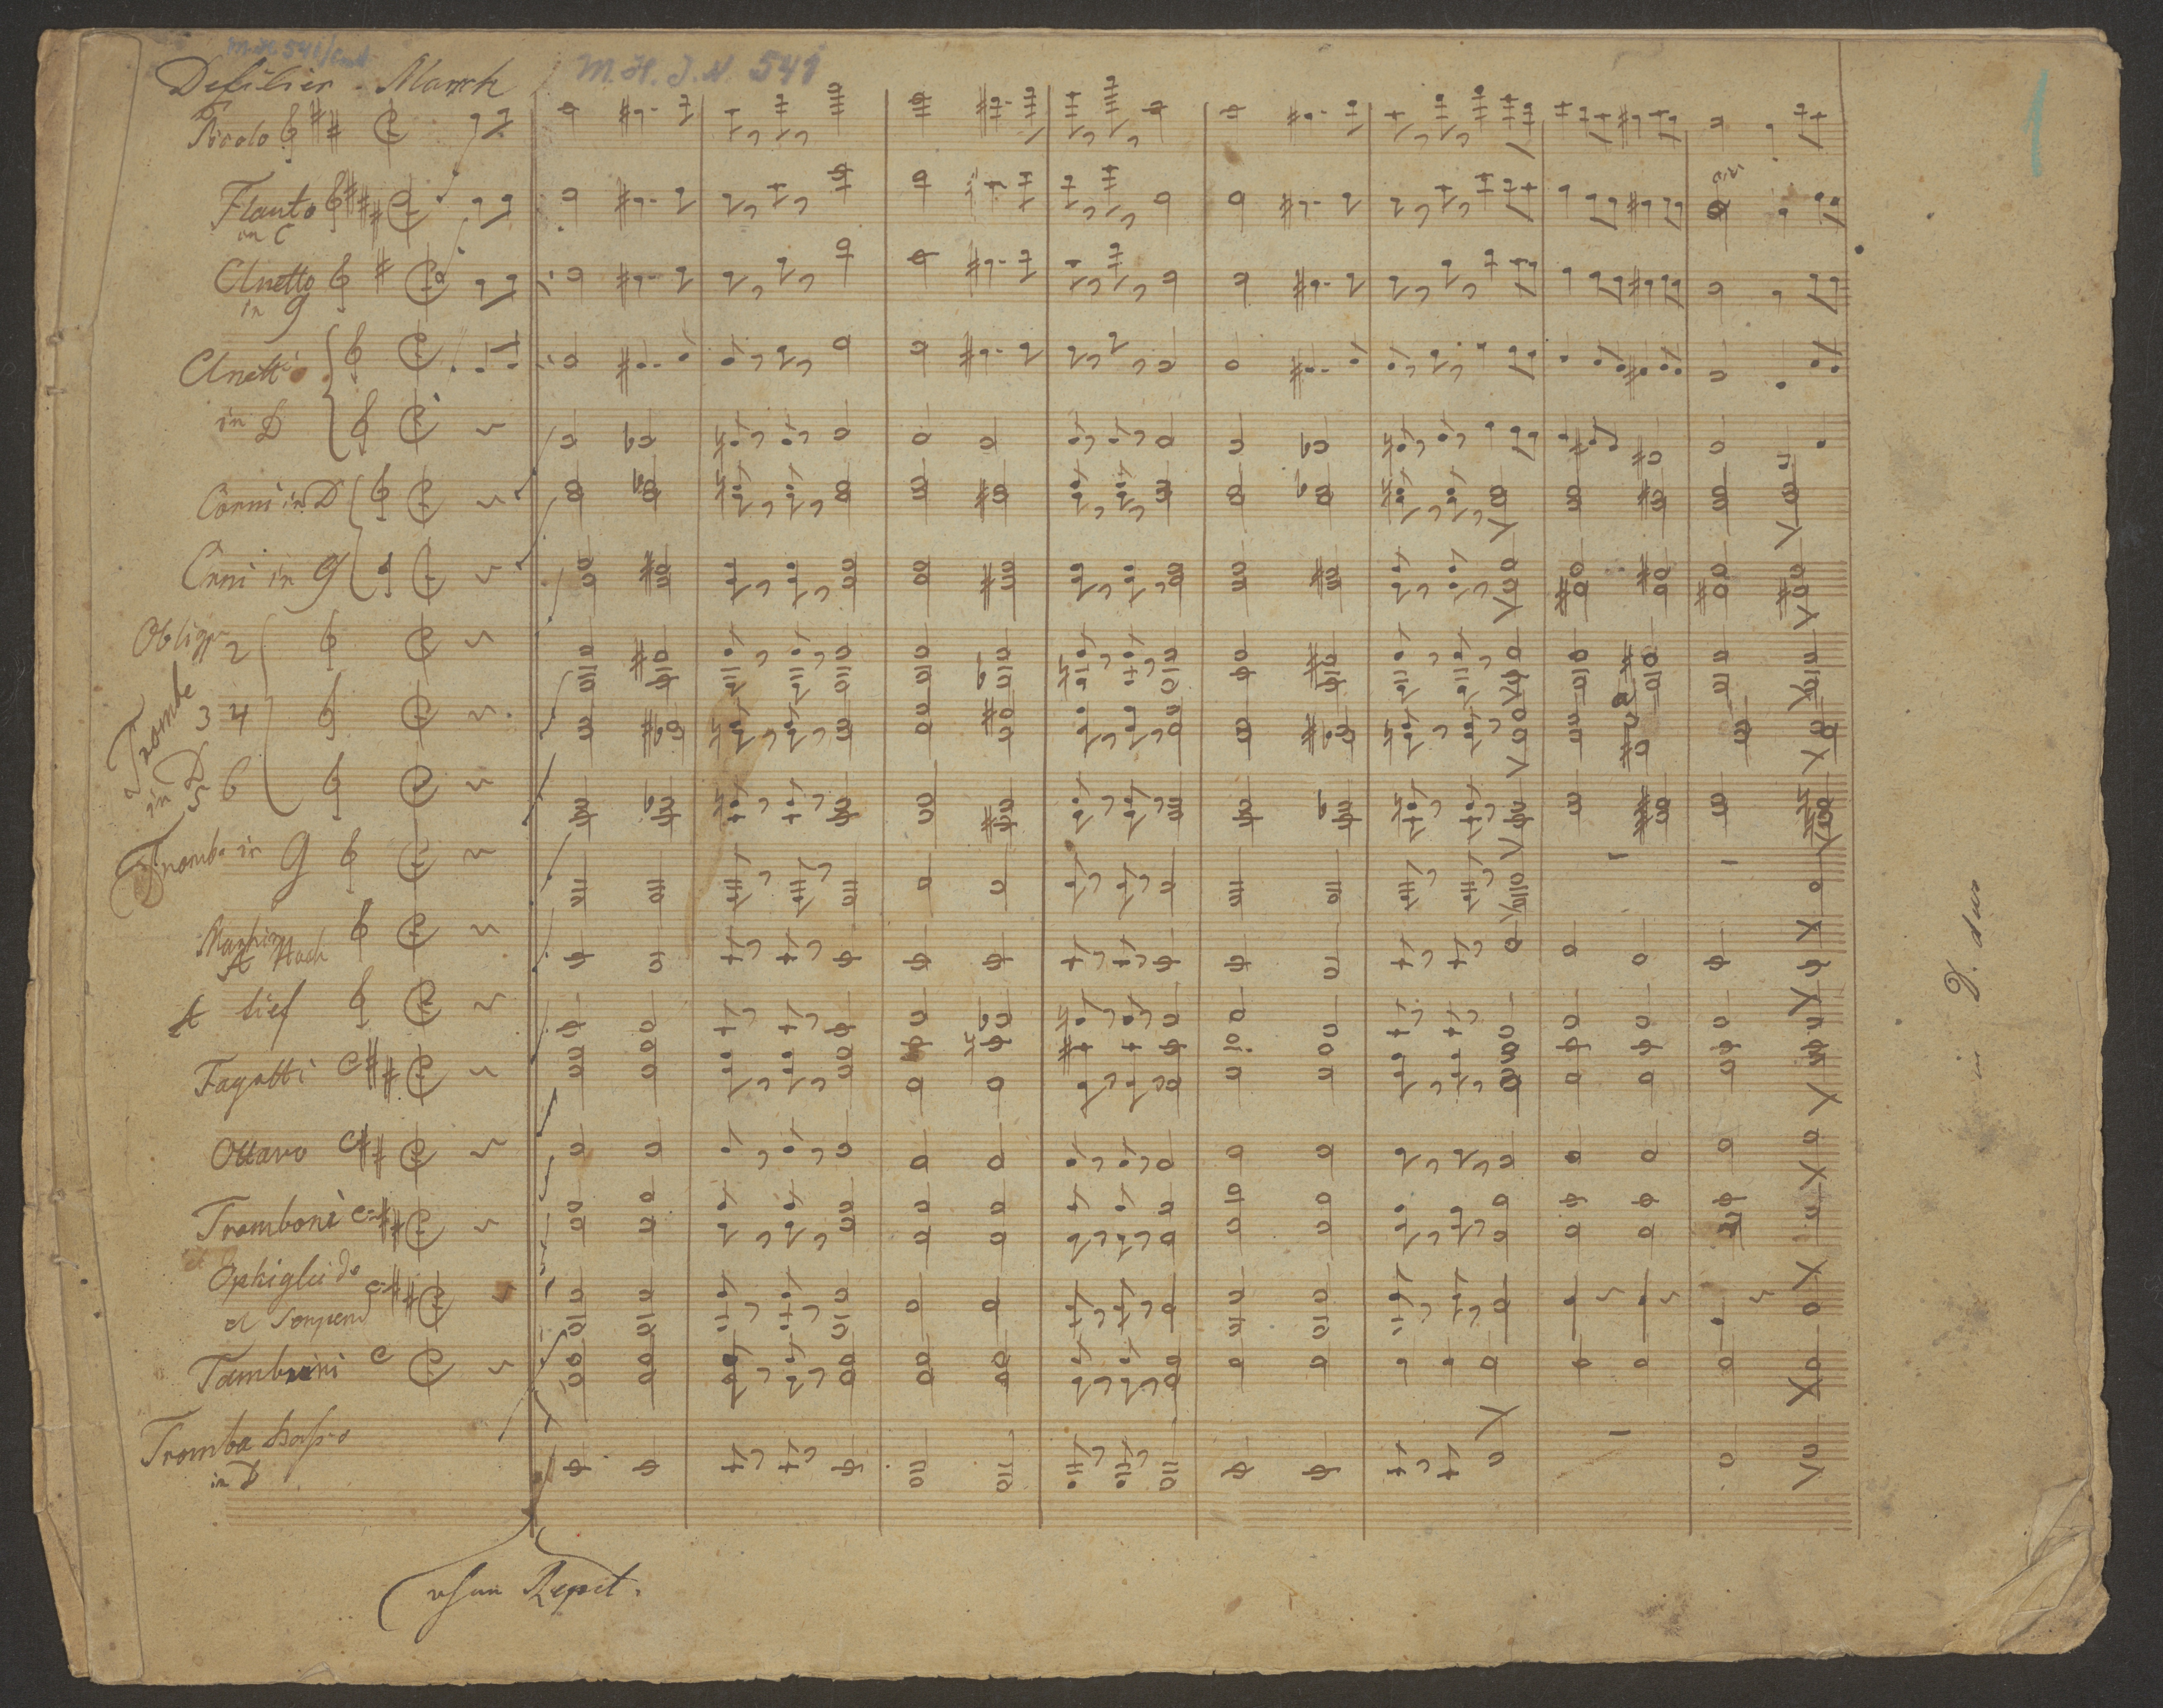 M. H. J. N. 541
1
Defilier-Marsch
Picolo
Flauto
in C
Clnetto
in G
Clnetti
in D
Corni in D
Crni in G
Oblig 2
Trombe
3 4
in D
5 6
Tromba in G
A Hoch
A tief
Fagotti
Ottavo
Tromboni
Ophigleide
et Serpent
Tambrini
Tromba basso
in D
ohne Repet.
in D. dur